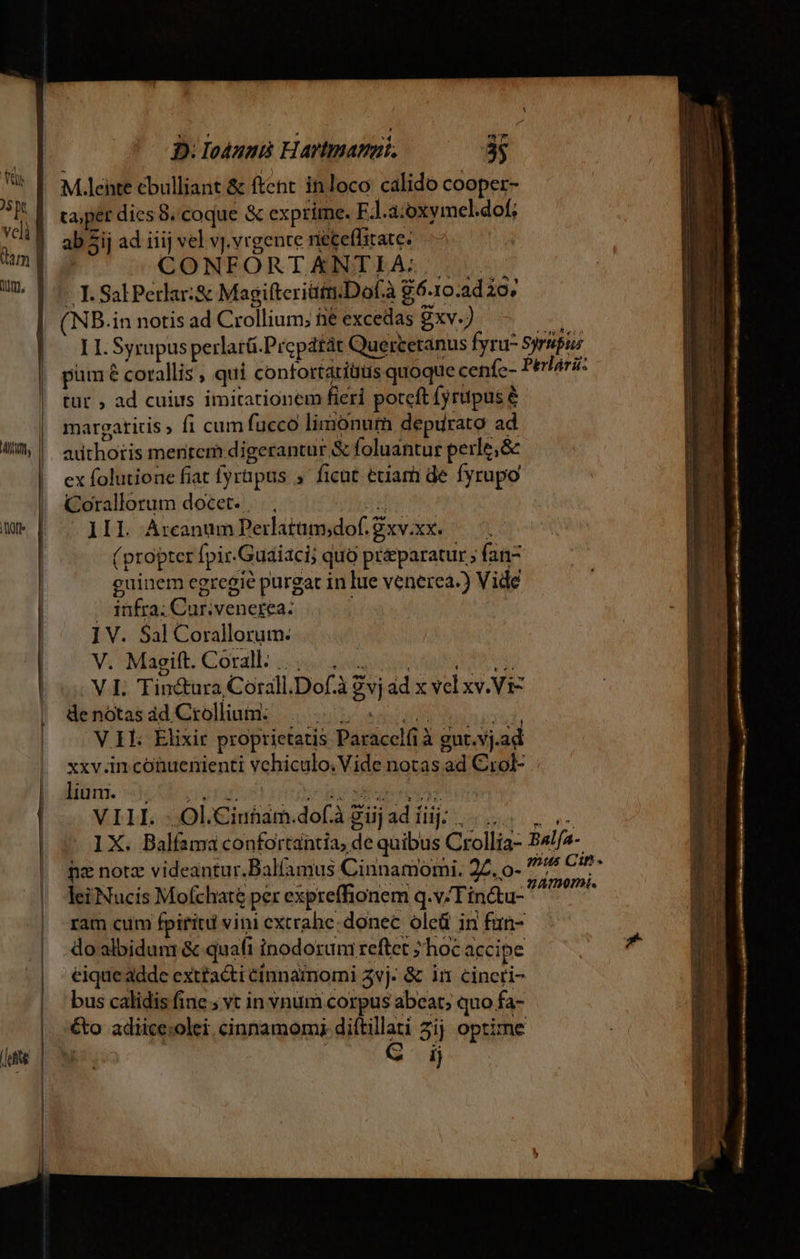 D. Ioannis Hartmanni. 35
M. lente ebulliant & ſtent in loco calido cooper-
ta, per dies 8. coque & exprime. F.l.a. oxymel. doſ.
ab ʒij ad iiij vel vj. vrgente neceſſitate.
CONFORTANTIA.
I. Sal Perlar. & Magiſterium. Doſ. à g 6. 10. ad 20.
(NB. in notis ad Crollium, ne excedas gxv.)
II. Syrupus perlarū. Præparat Quercetanus ſyru-
Syrupus
pum è corallis, qui confortatiuus quoque cenſe-
Perlarū.
tur, ad cuius imitationem fieri poteſt ſyrupus è
margaritis, ſi cum ſucco limonum depurato ad
authoris mentem digerantur & ſoluantur perle, &
ex ſolutione fiat ſyrupus, ſicut etiam de ſyrupo
Corallorum docet.
III. Arcanum Perlatum, doſ. gxv. xx.
(propter ſpir. Guaiaci, quo præparatur, ſan-
guinem egregiè purgat in lue venerea.) Vide
infra. Cur. venerea.
IV. Sal Corallorum.
V. Magiſt. Corall.
VI. Tinctura Corall. Doſ. à gvj ad x vel xv. Vi-
de notas ad Crollium.
VII. Elixir proprietatis Paracelſi à gut. vj. ad
xxv. in conuenienti vehiculo. Vide notas ad Crol-
lium.
VIII. Ol. Cinnam. doſ. à giij ad iiij.
IX. Balſama confortantia, de quibus Crollia-
Balſa-
næ notæ videantur. Balſamus Cinnamomi. ♃. o-
mus Cin-
lei Nucis Moſchatę per expreſſionem q. v. Tinctu-
namomi.
ram cum ſpiritu vini extrahe donec oleū in fun-
do albidum & quaſi inodorum reſtet; hoc accipe
eique adde extracti cinnamomi ʒvj. & in cineri-
bus calidis ſine, vt in vnum corpus abeat, quo fa-
cto adiice olei cinnamomi diſtillati ʒij optime
C ij